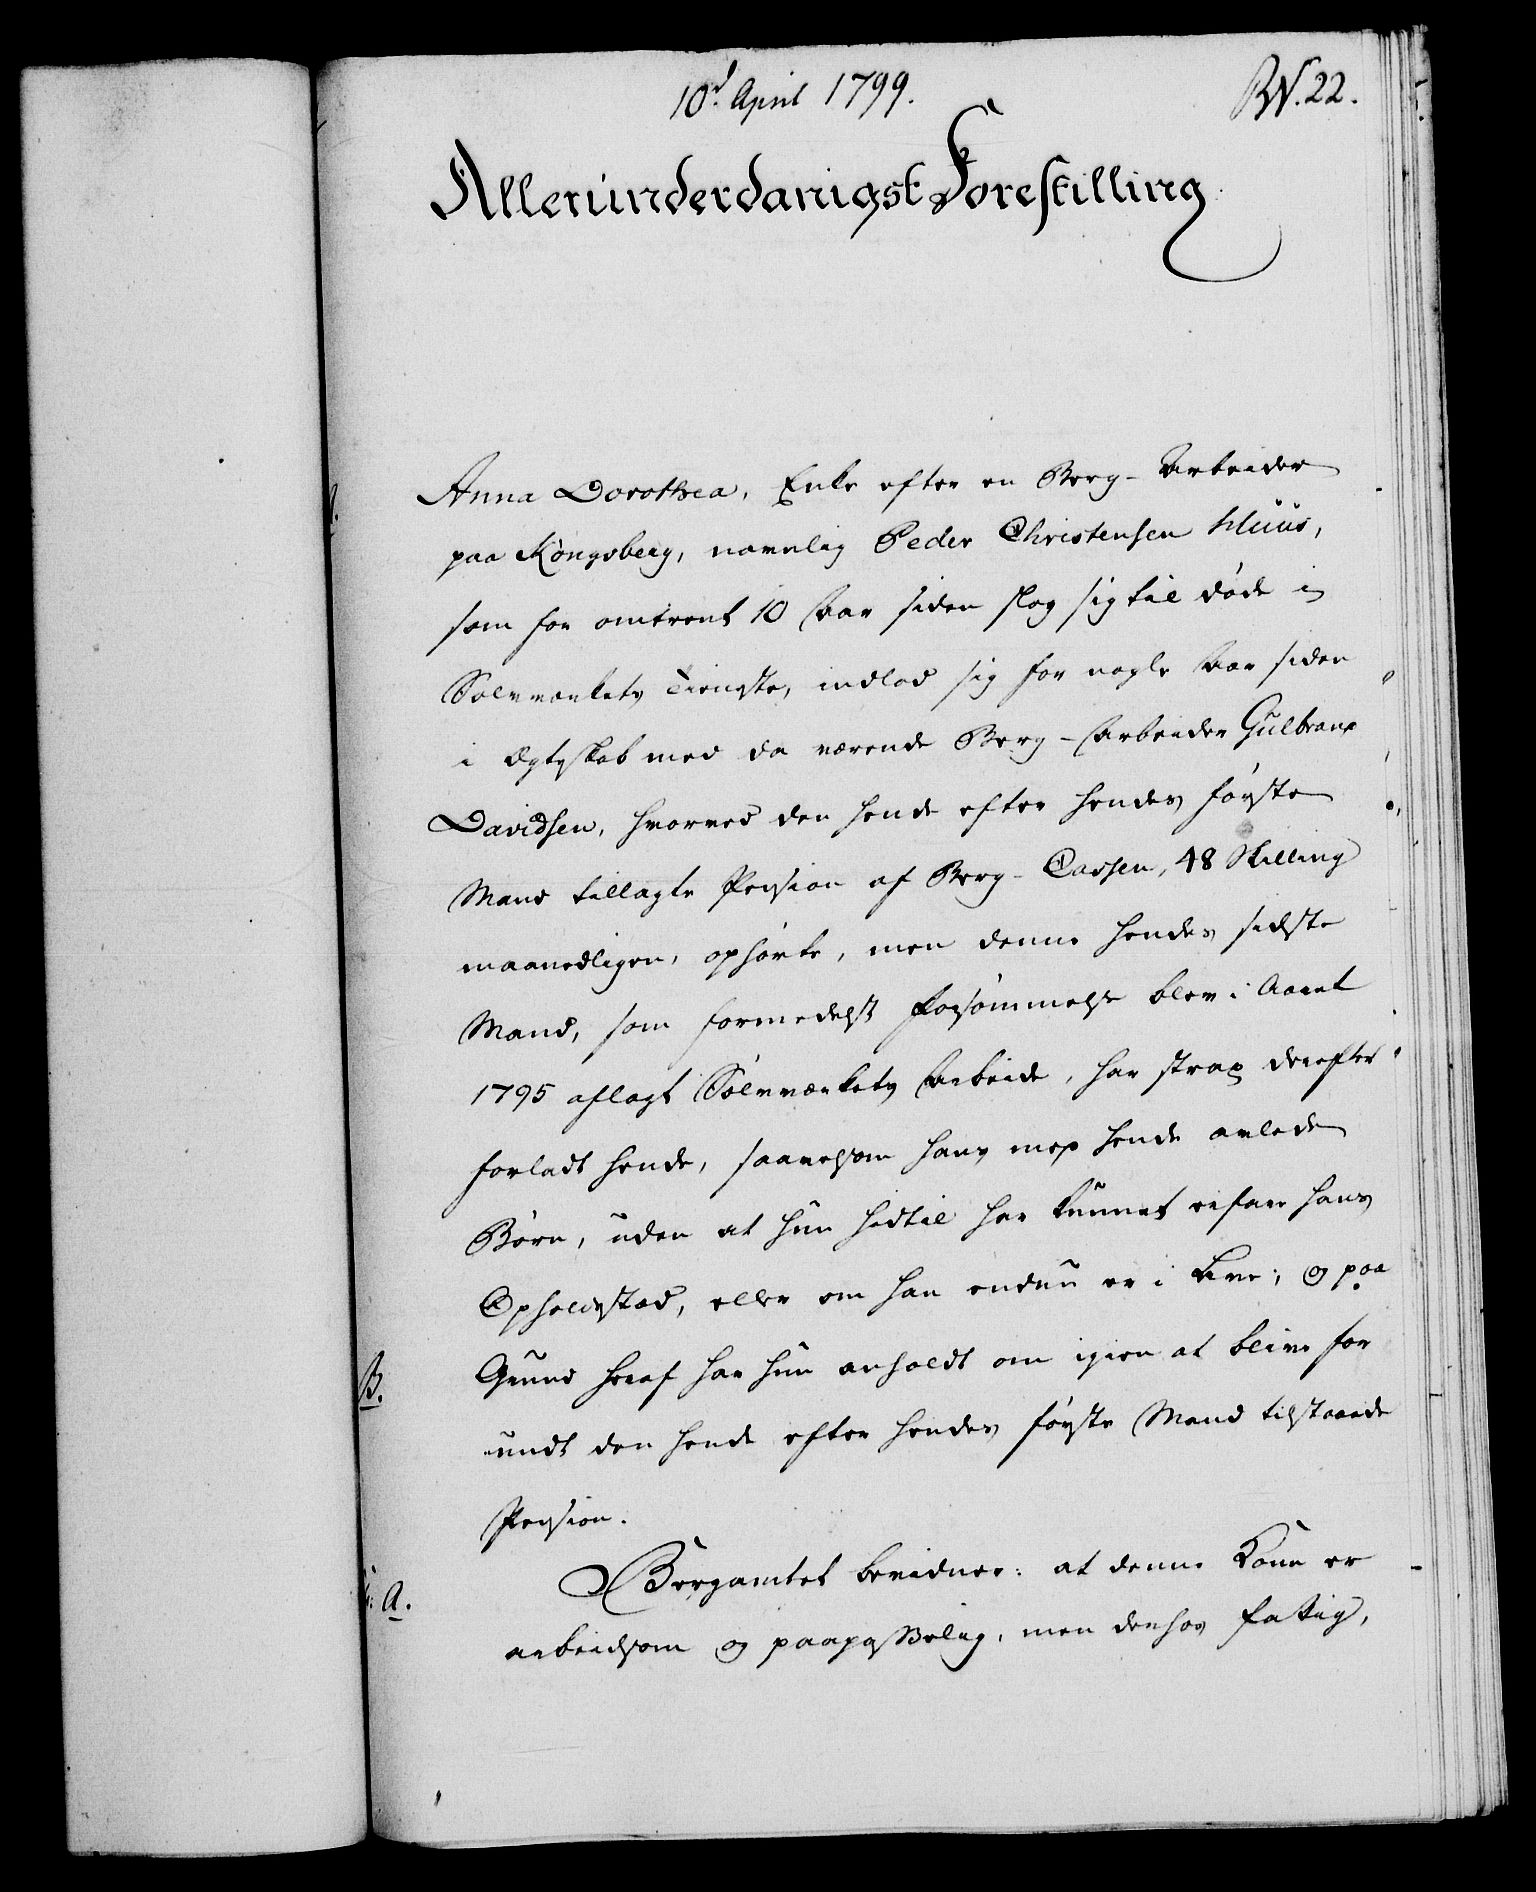 10d. April 1799.
RN. 22.
Allerunderdanigst Forestilling
Anna Dorothea, Enke efter en Berg-Arbeider
paa Kongsberg, navnlig Peder Christensen Muus,
som for omtrent 10 Aar siden slog sig til døde i
Sølvværkets Tieneste, indlod sig for nogle Aar siden
i Ægteskab med da værende Berg-Arbeider Gulbrand
Davidsen, hvorved den hende efter hendes første
Mand tillagte Pension af Berg-Cassen, 48 Skilling
maanedligen, ophørte, men denne hendes sidste
Mand, som formedelst Forsømmelse blev i Aaret
1795 aflagt Sølvværkets Arbeide, har strax derefter
forladt hende, saavelsom hans med hende avlede
Børn, uden at hun hidtil har kunnet erfare hans
Opholdstæd, eller om han endnu er i Live; og paa
B.
Grund heraf har hun anholdt om igien at blive for
undt den hende efter hendes første Mand tilstaaede
Pension.
Bergamtet bevidner: at denne Kone er
A.
arbeidsom og paapasselig, men derhos fattig,